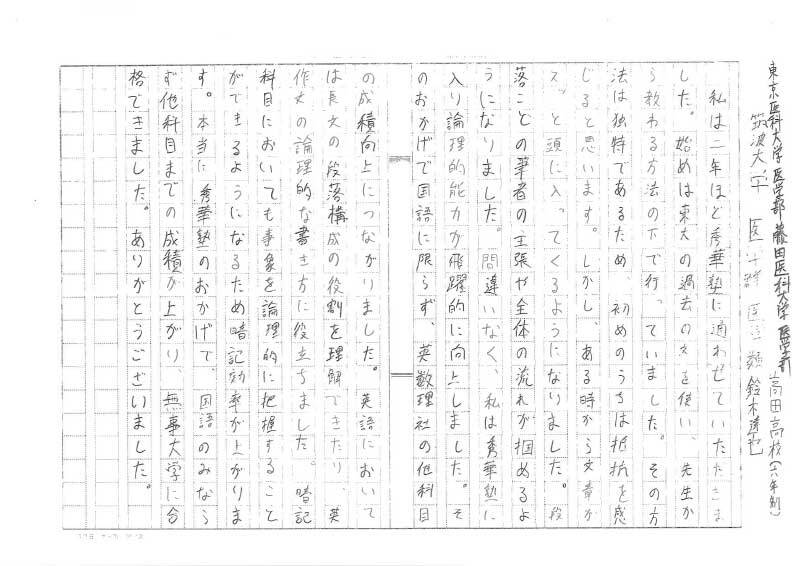 東京医科大学医学部 藤田医科大学 医学部 高田高校(六年制)
筑波大学 医学群 医学類 鈴木達也
私は二年ほど秀華塾に通わせていただきま
した。始めは東大の過去の文を使い、先生か
ら教わる方法の下で行っていました。その方
法は独特であるため、初めのうちは抵抗を感
じると思います。しかし、ある時から文章が
スッと頭に入ってくるようになりました。段
落ごとの筆者の主張や全体の流れが掴めるよ
うになりました。間違いなく、私は秀華塾に
入り論理的能力が飛躍的に向上しました。そ
のおかげで国語に限らず、英数理社の他科目
の成積向上につながりました。英語において
は長文の段落構成の役割を理解できたり、英
作文の論理的な書き方に役立ちました。暗記
科目においても事象を論理的に把握すること
ができるようになるため暗記効率が上がりま
す。本当に秀華塾のおかげで、国語のみなら
ず他科目までの成積が上がり、無事大学に合
格できました。ありがとうございました。